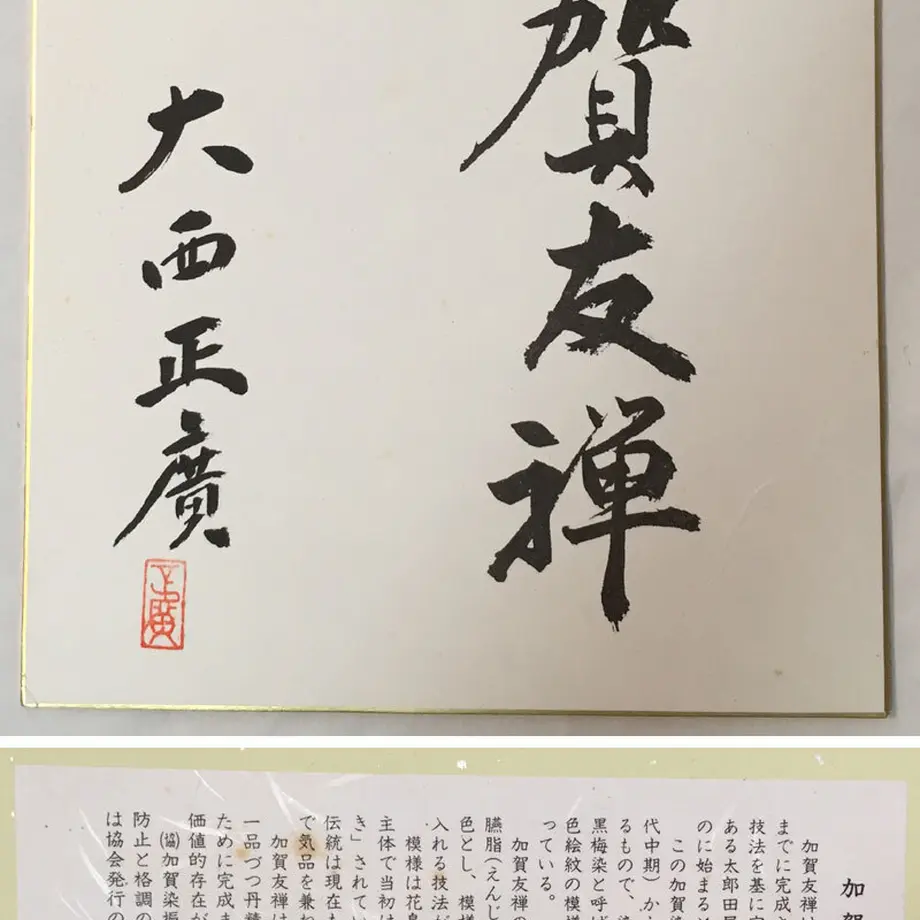 賀友禅
大西正廣
正廣
加賀
加賀友禅は
までに完成さ
技法を基に
ある太郎田屋
のに始まる
この加賀染
代中期）か
るもので、
黒梅染と呼ば
色絵紋の模様
っている。
加賀友禅の
臙脂（えんじ
色とし、模様
入れる技法が
模様は花鳥
主体で当初は
き」されてい
伝統は現在も
で気品を兼ね
加賀友禅は
一品づつ丹精
ために完成ま
価値的存在が
㈿加賀染振
防止と格調の
は協会発行の